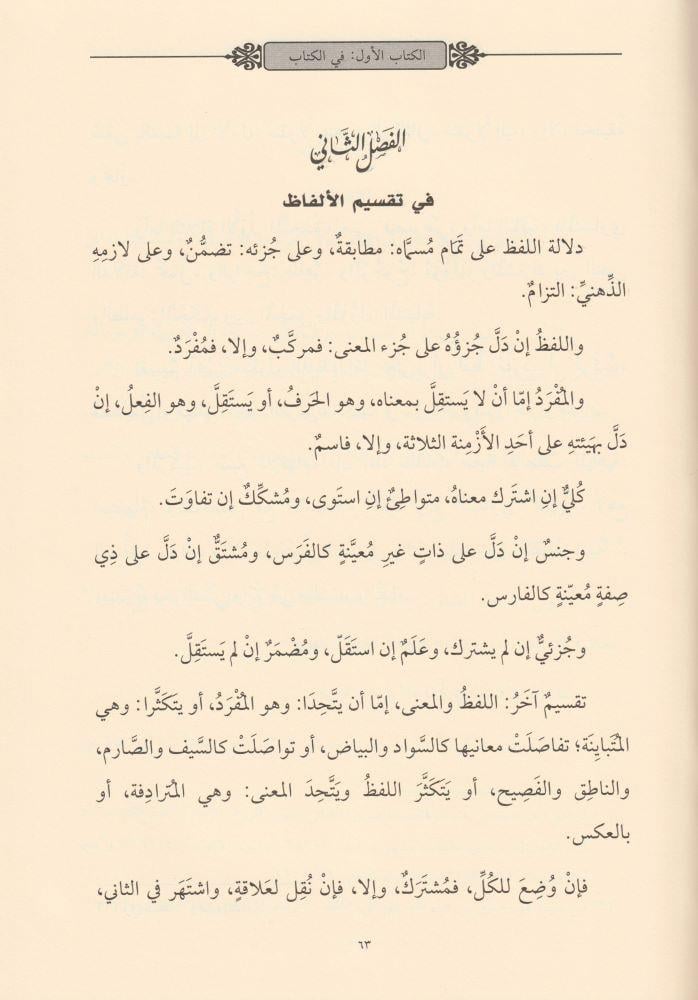 الكتاب الأول: في الكتاب
الفَصْلُ الثَّاني
في تقسيم الألفاظ
دلالة اللفظ على تَمَام مُسمَّاه: مطابقةٌ، وعلى جُزئه: تضمُّنٌ، وعلى لازمِهِ
الذِّهنيِّ: التزامٌ.
واللفظُ إنْ دَلَّ جُزؤُهُ على جُزء المعنى: فمركَّبٌ، وإلا، فمُفْرَدٌ.
والمُفْرَدُ إمّا أنْ لا يَستقِلَّ بمعناه، وهو الحَرفُ، أو يَستَقِلَّ، وهو الفِعلُ، إنْ
دَلَّ بهَيئتهِ على أحَدِ الأَزْمِنة الثلاثة، وإلا، فاسمٌ.
كُليٌّ إنِ اشتَرك معناهُ، متواطِئٌ إنِ استَوى، ومُشكِّكٌ إن تفاوَتَ.
وجنسٌ إنْ دَلَّ على ذاتٍ غيرِ مُعيَّنةٍ كالفَرَس، ومُشتَقٌّ إنْ دَلَّ على ذِي
صِفةٍ مُعيّنةٍ كالفارس.
وجُزئيٌّ إن لم يشترك، وعَلَمٌ إن استَقَلّ، ومُضْمَرٌ إنْ لم يَستَقِلَّ.
تقسيمٌ آخَرُ: اللفظُ والمعنى، إمّا أن يتَّحِدَا: وهو المُفْرَدُ، أو يتكَثَّرا: وهي
المُتَبايِنَة؛ تفاصَلَتْ معانيها كالسَّواد والبياض، أو تواصَلَتْ كالسَّيف والصَّارم،
والناطِق والفَصِيح، أو يَتَكَثَّرَ اللفظُ ويَتَّحِدَ المعنى: وهي المُترادِفة، أو
بالعكس.
فإنْ وُضِعَ للكُلِّ، فمُشتَرَكٌ، وإلا، فإنْ نُقِل لعَلاقةٍ، واشتَهَر في الثاني،
٦٣